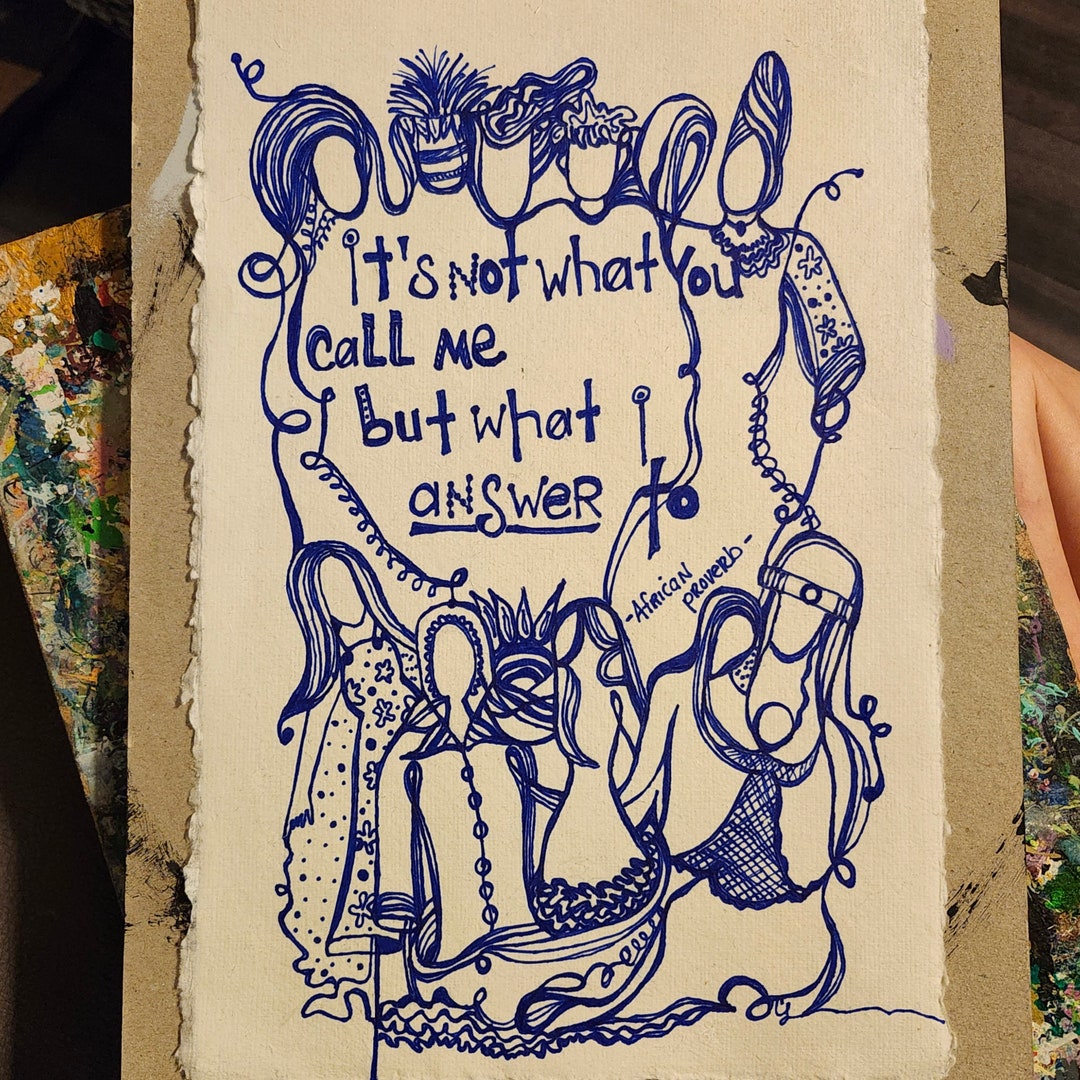 it's not what you
call me
but what i
answer to
-African
proverb-